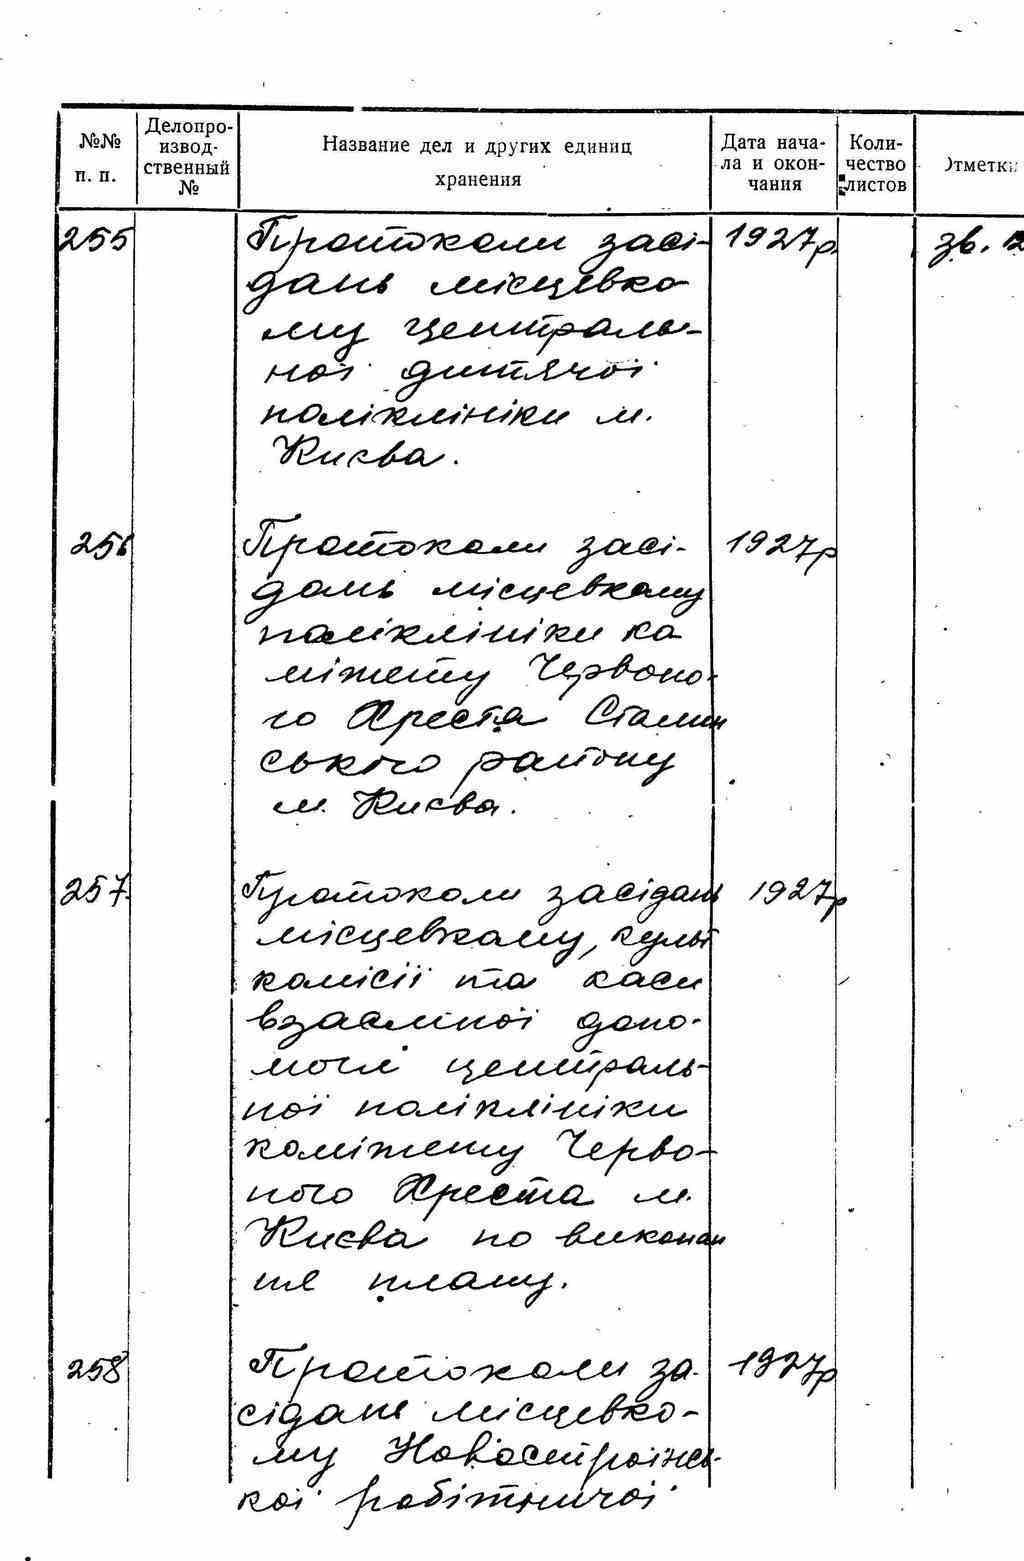 №№ п. п. Делопро-изводственный № Название дел и других единиц хранения Дата начала и окончания Количество листов Отметки
255 Протоколи засі- 1927р. зв. 12
дань місцевко-
му централь-
ної дитячої
поліклініки м.
Києва.
256 Протоколи засі- 1927р
дань місцевкому
поліклініки ко
мітету Червоно-
го Хреста Сталин
ського району
м. Києва.
257. Протоколи засідань 1927р
місцевкому, культ
комісії та каси
взаємної допо-
моги централь-
ної поліклініки
комітету Черво-
ного Хреста м.
Києва по виконан
ня плану.
258 Протоколи за- 1927р
сідань місцевко-
му Новостроїнсь-
кої робітничої